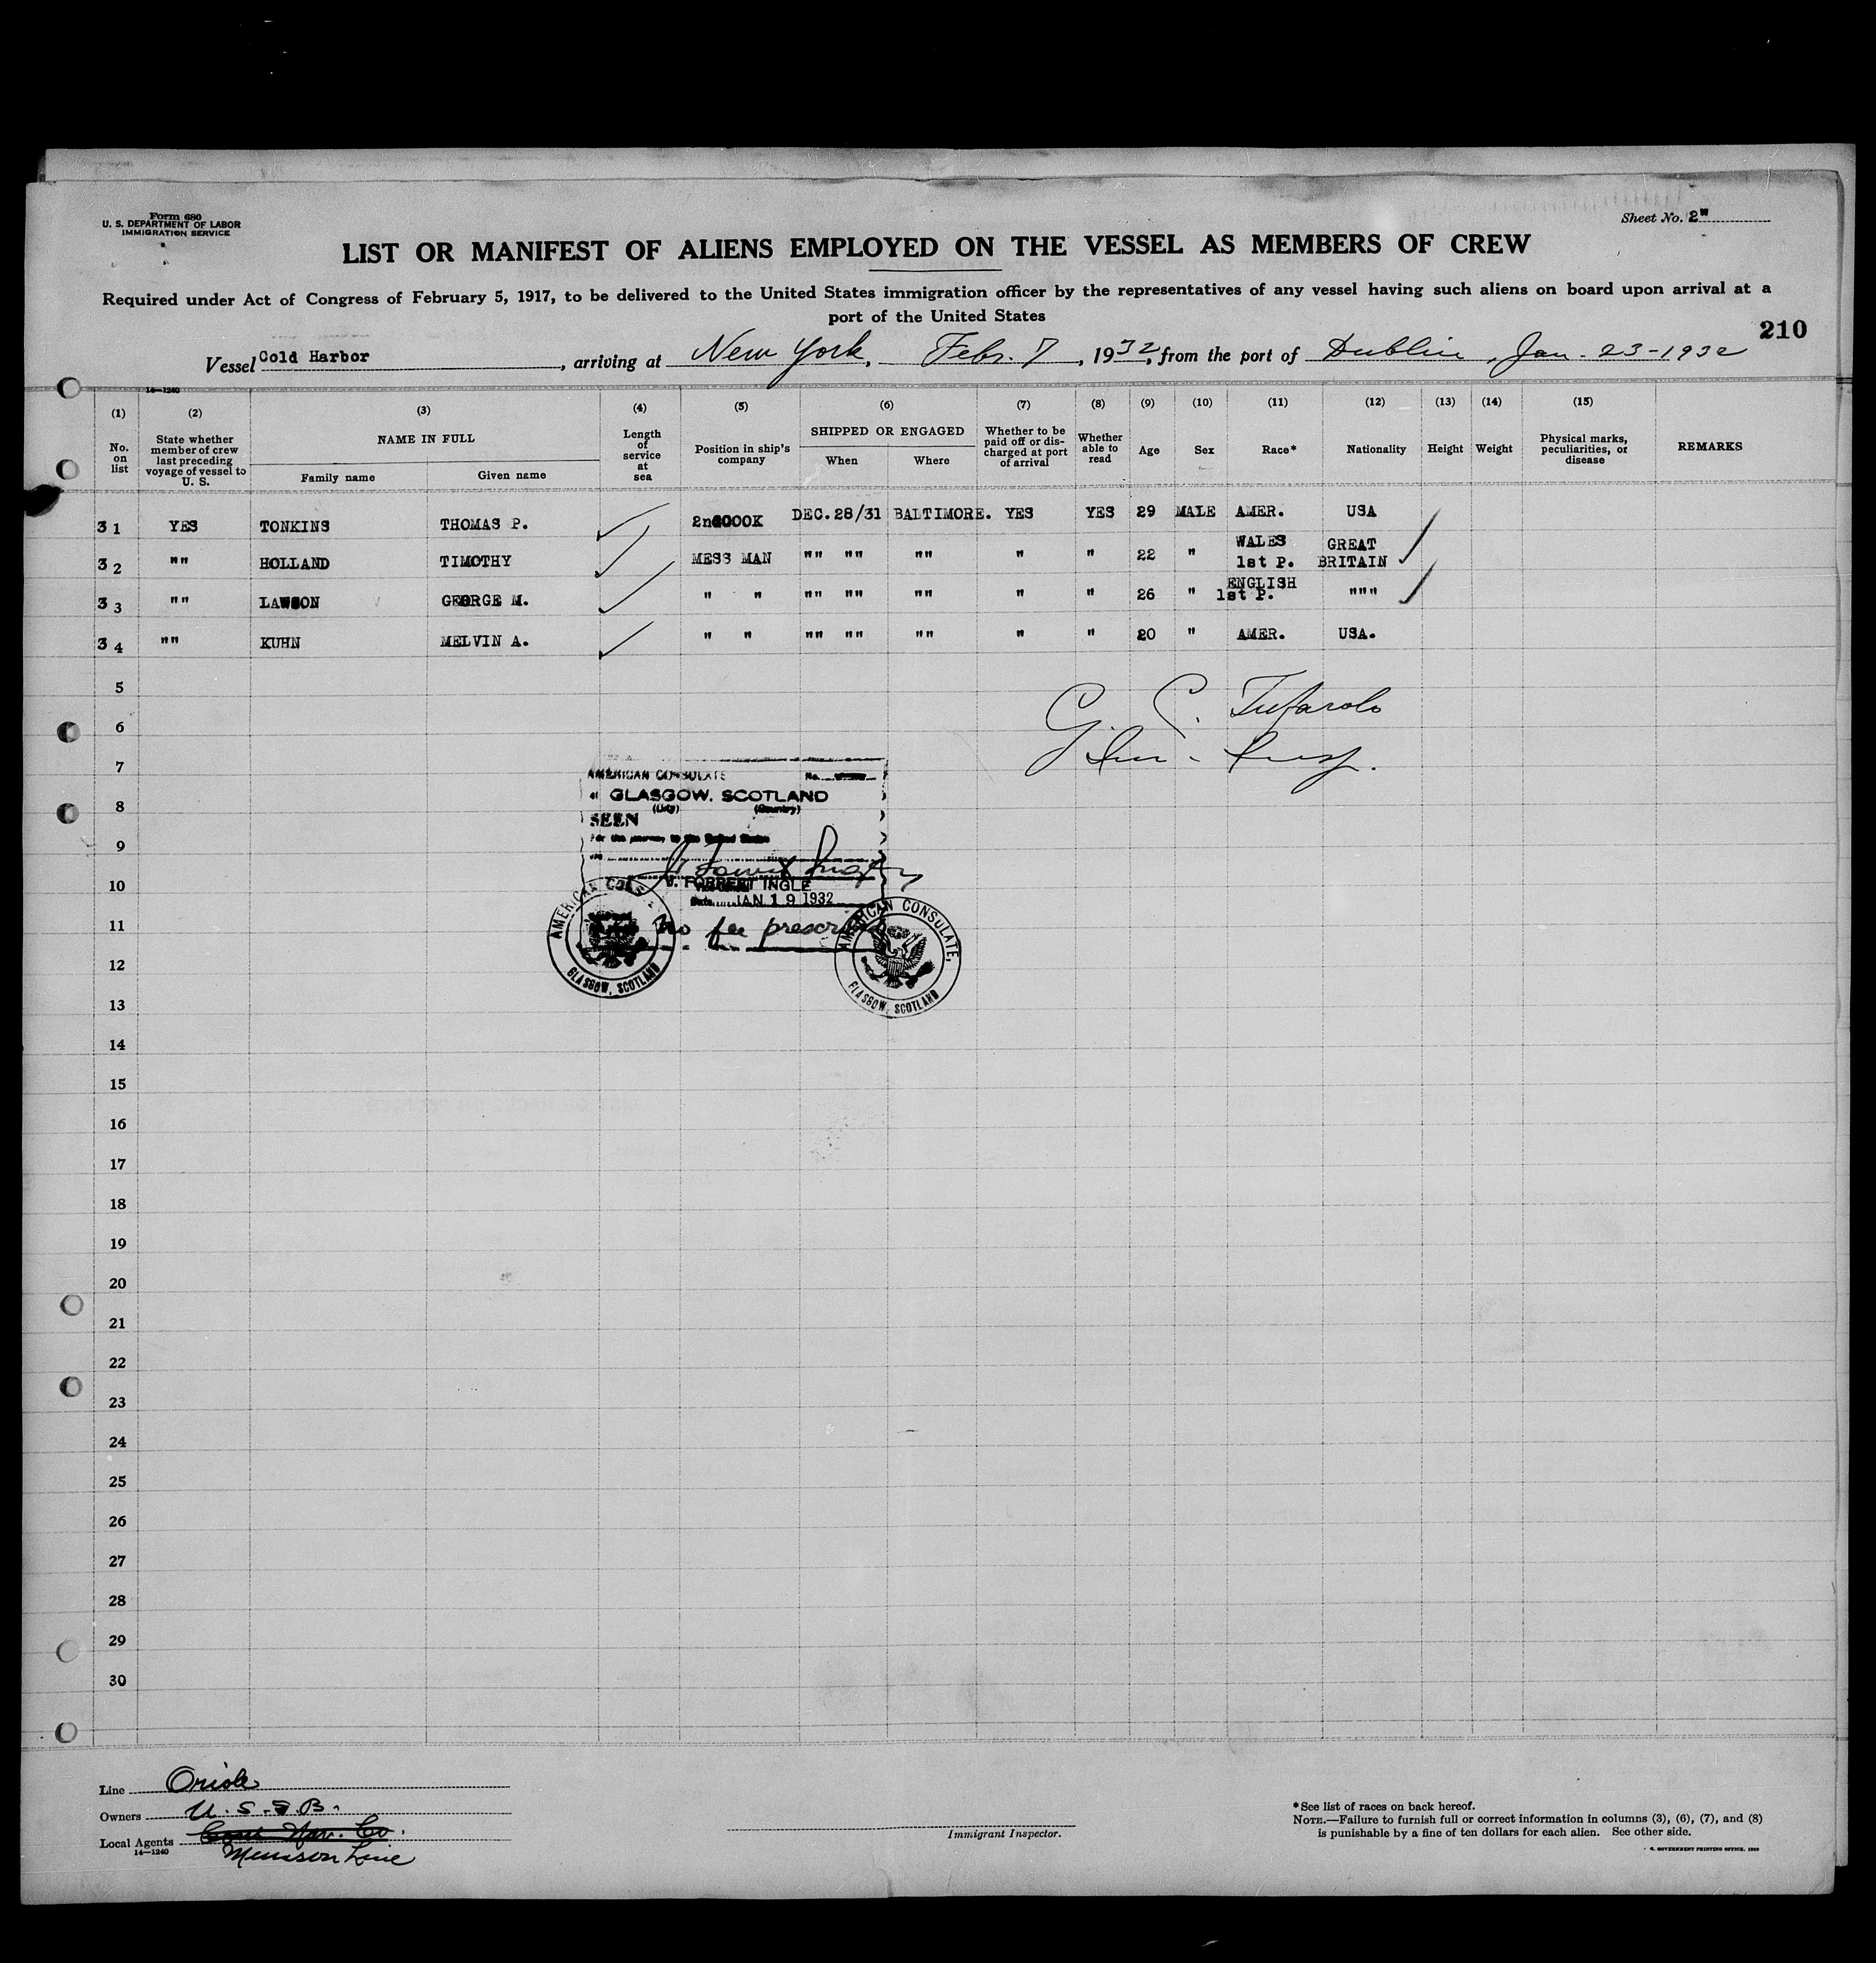 Form 680
U. S. DEPARTMENT OF LABOR
IMMIGRATION SERVICE
Sheet No. 2"
LIST OR MANIFEST OF ALIENS EMPLOYED ON THE VESSEL AS MEMBERS OF CREW
Required under Act of Congress of February 5, 1917, to be delivered to the United States immigration officer by the representatives of any vessel having such aliens on board upon arrival at a
port of the United States
210
Vessel Cold Harbor, arriving at New York, Febr. 7, 1932, from the port of Dublin, Jan. 23-1932
14—1240
(1) (2) (3) (4) (5) (6) (7) (8) (9) (10) (11) (12) (13) (14) (15)
No. on list State whether member of crew last preceding voyage of vessel to U. S. NAME IN FULL Family name Given name Length of service at sea Position in ship's company SHIPPED OR ENGAGED When Where Whether to be paid off or discharged at port of arrival Whether able to read Age Sex Race* Nationality Height Weight Physical marks, peculiarities, or disease REMARKS
31 YES TONKINS THOMAS P. 2nd COOK DEC.28/31 BALTIMORE. YES YES 29 MALE AMER. USA
32 "" HOLLAND TIMOTHY MESS MAN "" "" "" " " 22 " WALES 1st P. GREAT BRITAIN
33 "" LAWSON GEORGE M. " " "" "" "" " " 26 " ENGLISH 1st P. """
34 "" KUHN MELVIN A. " " "" "" "" " " 20 " AMER. USA.
5
6
7
8
9
10
11
12
13
14
15
16
17
18
19
20
21
22
23
24
25
26
27
28
29
30
AMERICAN CONSULATE No.
at GLASGOW, SCOTLAND
(City) (Country)
SEEN
For the journey to the United States
J. FORREST INGLE
Date JAN 19 1932
No fee prescribed
AMERICAN CONSULATE, GLASGOW, SCOTLAND
AMERICAN CONSULATE, GLASGOW, SCOTLAND
Line Oriole
Owners U. S. S. B.
Local Agents
Munson Line
14—1240
Immigrant Inspector.
*See list of races on back hereof.
NOTE.—Failure to furnish full or correct information in columns (3), (6), (7), and (8)
is punishable by a fine of ten dollars for each alien. See other side.